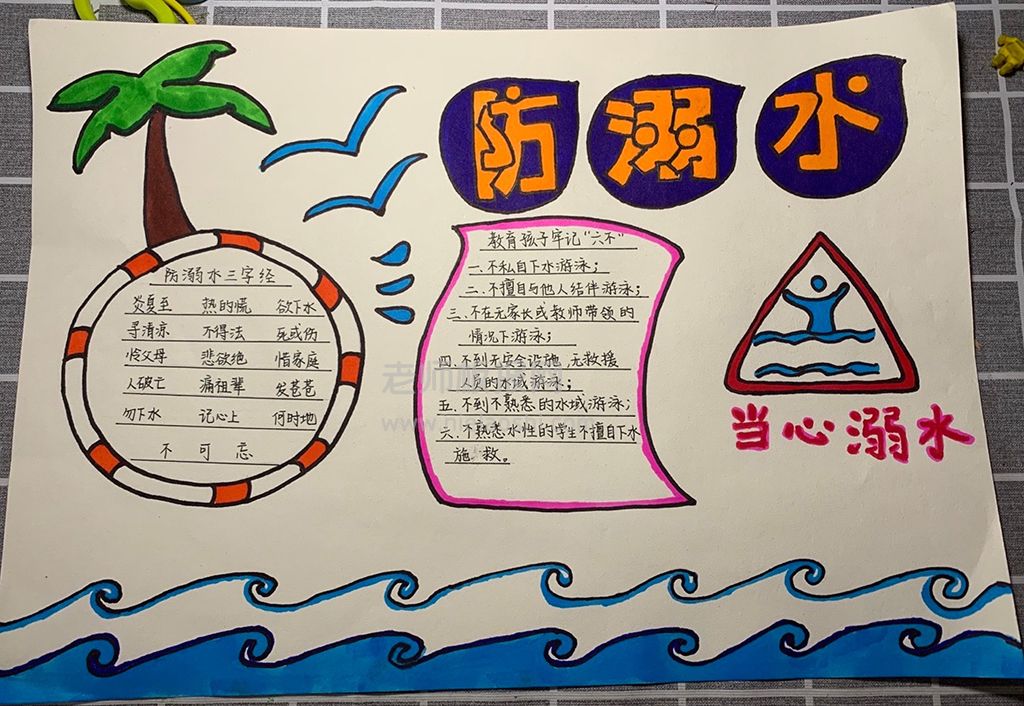 防溺水
防溺水三字经
炎夏至 热的慌 欲下水
寻清凉 不得法 死或伤
怜父母 悲欲绝 惜家庭
人破亡 痛祖辈 发苍苍
勿下水 记心上 何时地
不可忘
教育孩子牢记“六不”
一、不私自下水游泳；
二、不擅自与他人结伴游泳；
三、不在无家长或教师带领的
情况下游泳；
四、不到无安全设施、无救援
人员的水域游泳；
五、不到不熟悉的水域游泳；
六、不熟悉水性的学生不擅自下水
施救。
当心溺水